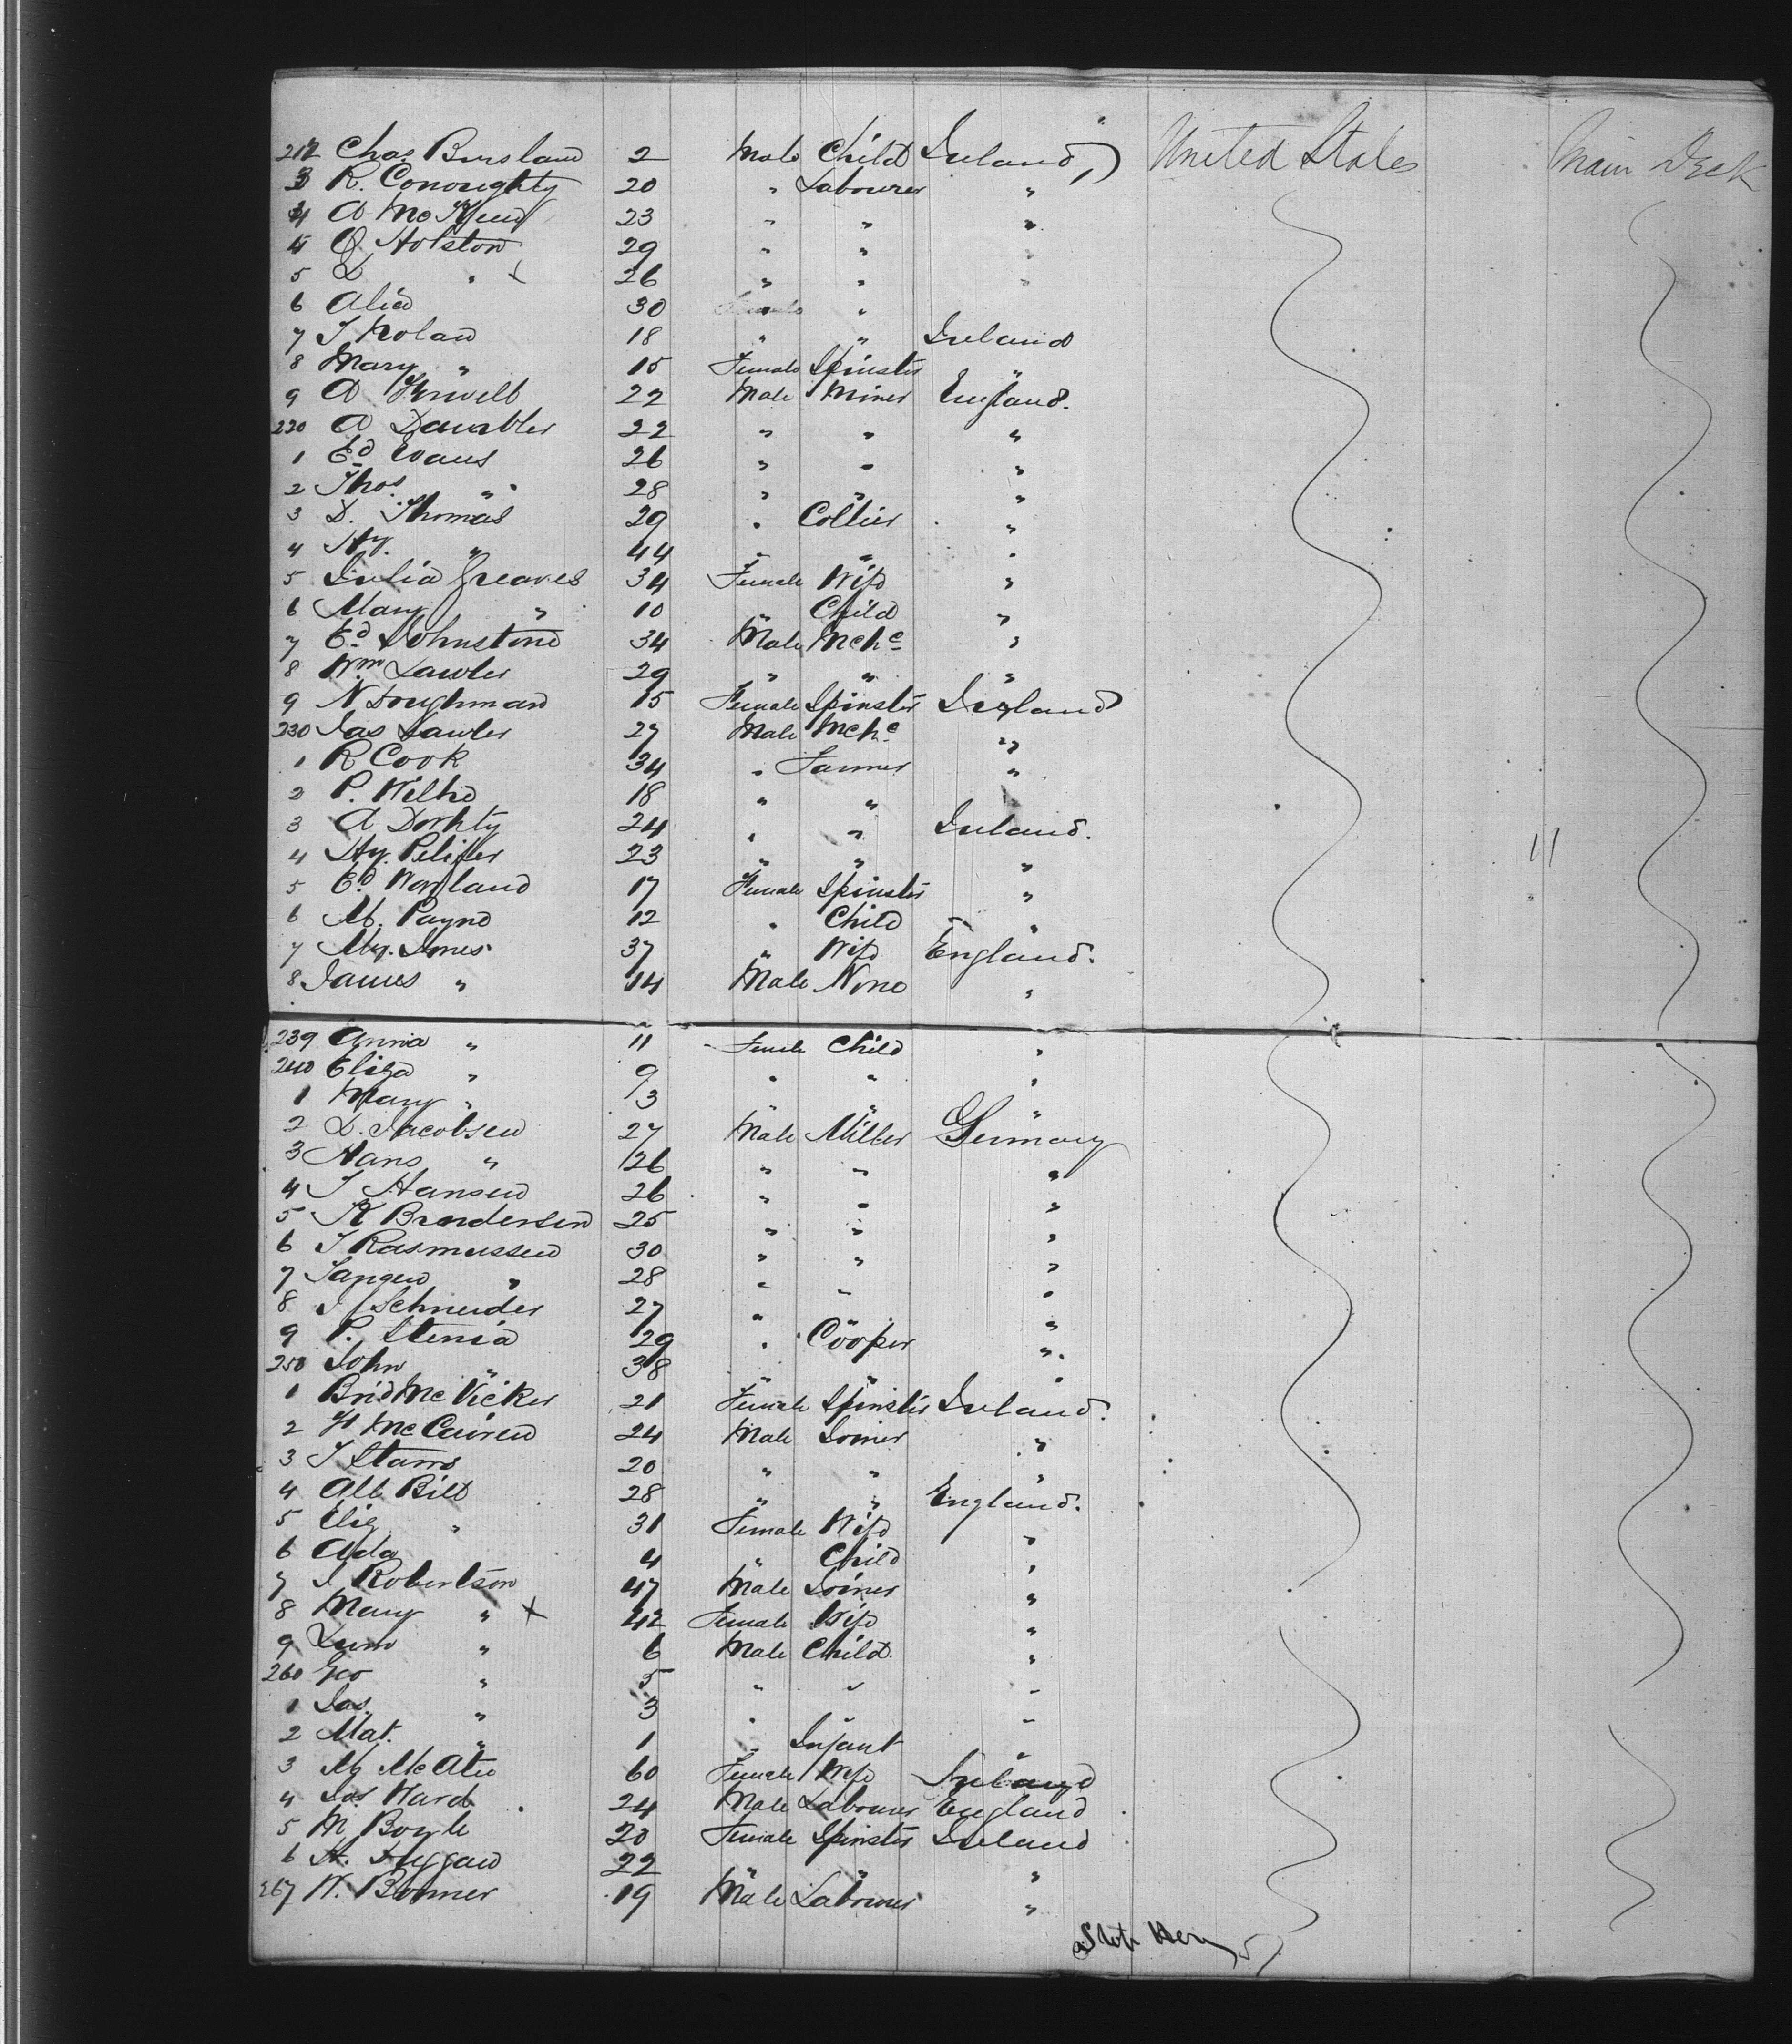 212 Chas. Bursland 2 Male Child Ireland United States Main Deck
3 R. Conoughty 20 " Labourer "
4 A Mc 23 " " "
4 Holston 29 " " "
5 D " x 26 " " "
6 Alia 30 Female " "
7 J Nolan 18 " " Ireland
8 Mary " 15 Female Spinster "
9 A 22 Male Miner England.
220 A 22 " " "
1 Ed Evans 26 " " "
2 Thos " 28 " " "
3 D. Thomas 29 " Collier "
4 Hy. " 44 " " "
5 Julia Greaves 34 Female Wife "
6 Mary " 10 " Child "
7 Ed Johnstone 34 Male Mchc "
8 Wm Lawler 29 " " "
9 N Doughman 15 Female Spinster Ireland
230 Jas Lawler 27 Male Mchc "
1 R Cook 34 " Farmer "
2 P. Wilkie 18 " " "
3 A Dorhty 24 " " Ireland.
4 Hy. 23 " " "
5 Ed Worland 17 Female Spinster "
6 M. Payne 12 " Child "
7 My. Imes 37 " Wife England.
8 James " 14 Male None "
239 Anna " 11 Female Child "
240 Eliza " 9 " " "
1 Mary " 3 " " "
2 L. Jacobsen 27 Male Miller Germany
3 Hans " 26 " " "
4 J Hansen 26 " " "
5 K Brandersen 25 " " "
6 J Rasmussen 30 " " "
7 " 28 " " "
8 J Schneider 27 " " "
9 P. Stenia 29 " Cooper "
250 John " 38 " " "
1 Brid McVicker 21 Female Spinster Ireland.
2 H McCuren 24 Male Joiner "
3 J Starrs 20 " " "
4 Alb Bill 28 " " England.
5 Eliz " 31 Female Wife "
6 Ada 4 " Child "
7 J Robertson 47 Male Joiner "
8 Mary " x 42 Female Wife "
9 " 6 Male Child "
260 Geo " 5 " " "
1 Jas. " 3 " " "
2 Mat. " 1 " Infant "
3 My McAtee 60 Female Wife Ireland
4 Jas Ward 24 Male Labourer England
5 M Boyle 20 Female Spinster Ireland
6 A. 22 " " "
267 W. Bonner 19 Male Labourer "